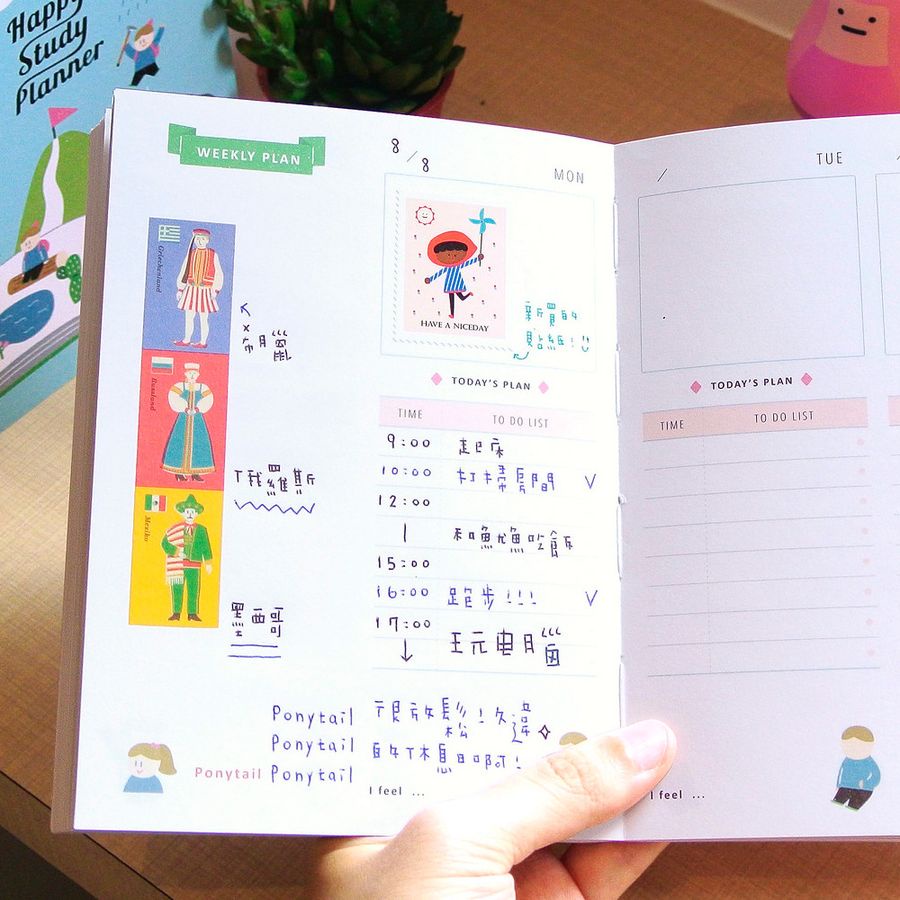 Happy
Study
Planner
WEEKLY PLAN
8/8
MON
Griechenland
希臘
Russland
俄羅斯
Mexiko
墨西哥
HAVE A NICEDAY
新買的
貼紙!
TODAY'S PLAN
TIME TO DO LIST
9:00 起床
10:00 打掃房間 V
12:00
和魷魚吃飯
15:00
16:00 跑步!!! V
17:00
↓ 玩電腦
Ponytail 很放鬆!久違
Ponytail 的休息日啊!
Ponytail Ponytail
I feel ...
/
TUE
TODAY'S PLAN
TIME TO DO LIST
I feel ...